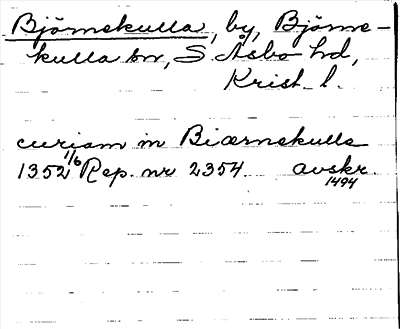 Björnekulla, by, Björne-
kulla sn, S. Åsbo hd,
Krist. l.
curiam in Biærnekulle
1352 1/6 Rep. nr 2354 avskr.
1494